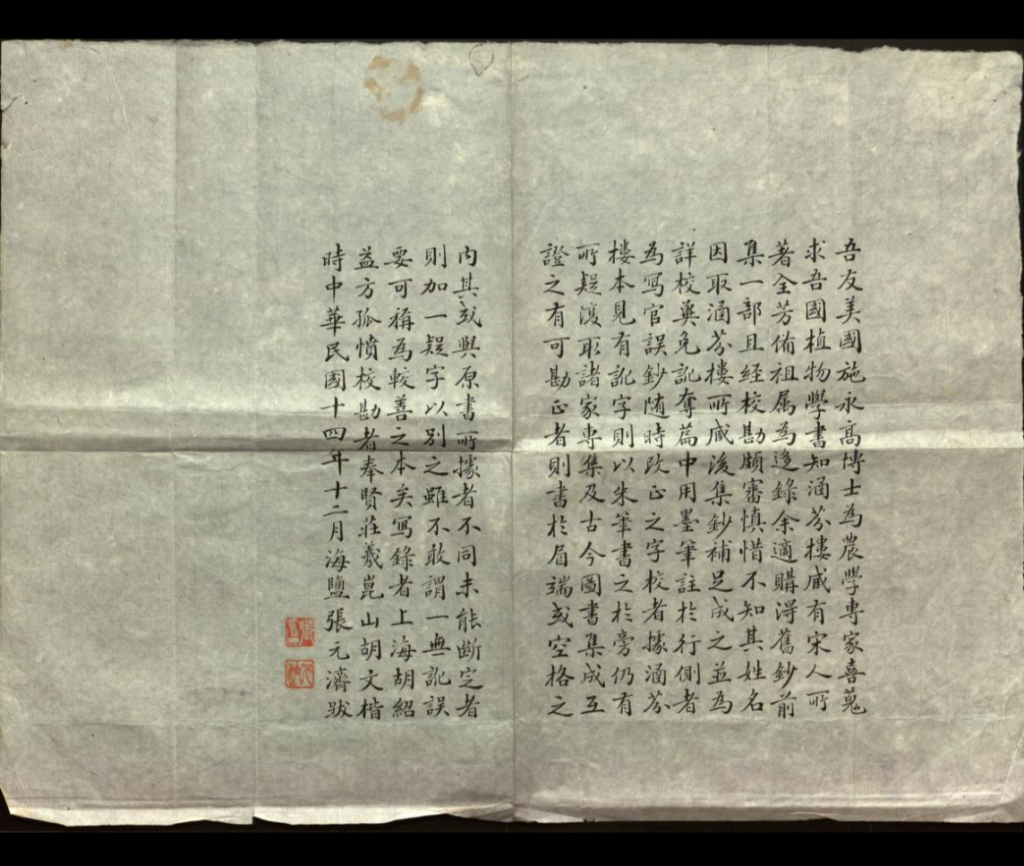 吾友美國施永高博士為農學專家喜蒐
求吾國植物學書知涵芬樓臧有宋人所
著全芳俻祖属為迻錄余適購得舊鈔前
集一部且經校勘頗審慎惜不知其姓名
因取涵芬樓所臧後集鈔補足成之並為
詳校兾免訛奪篇中用墨筆註於行側者
為寫官誤鈔随時改正之字校者據涵芬
樓本見有訛字則以朱筆書之於旁仍有
所疑復取諸家專集及古今圖書集成互
證之有可勘正者則書於眉端或空格之
内其或與原書所據者不同未能斷定者
則加一疑字以別之雖不敢謂一無訛誤
要可稱為較善之本矣寫錄者上海胡紹
益方孤憤校勘者奉賢莊羲崑山胡文楷
時中華民國十四年十二月海鹽張元濟跋